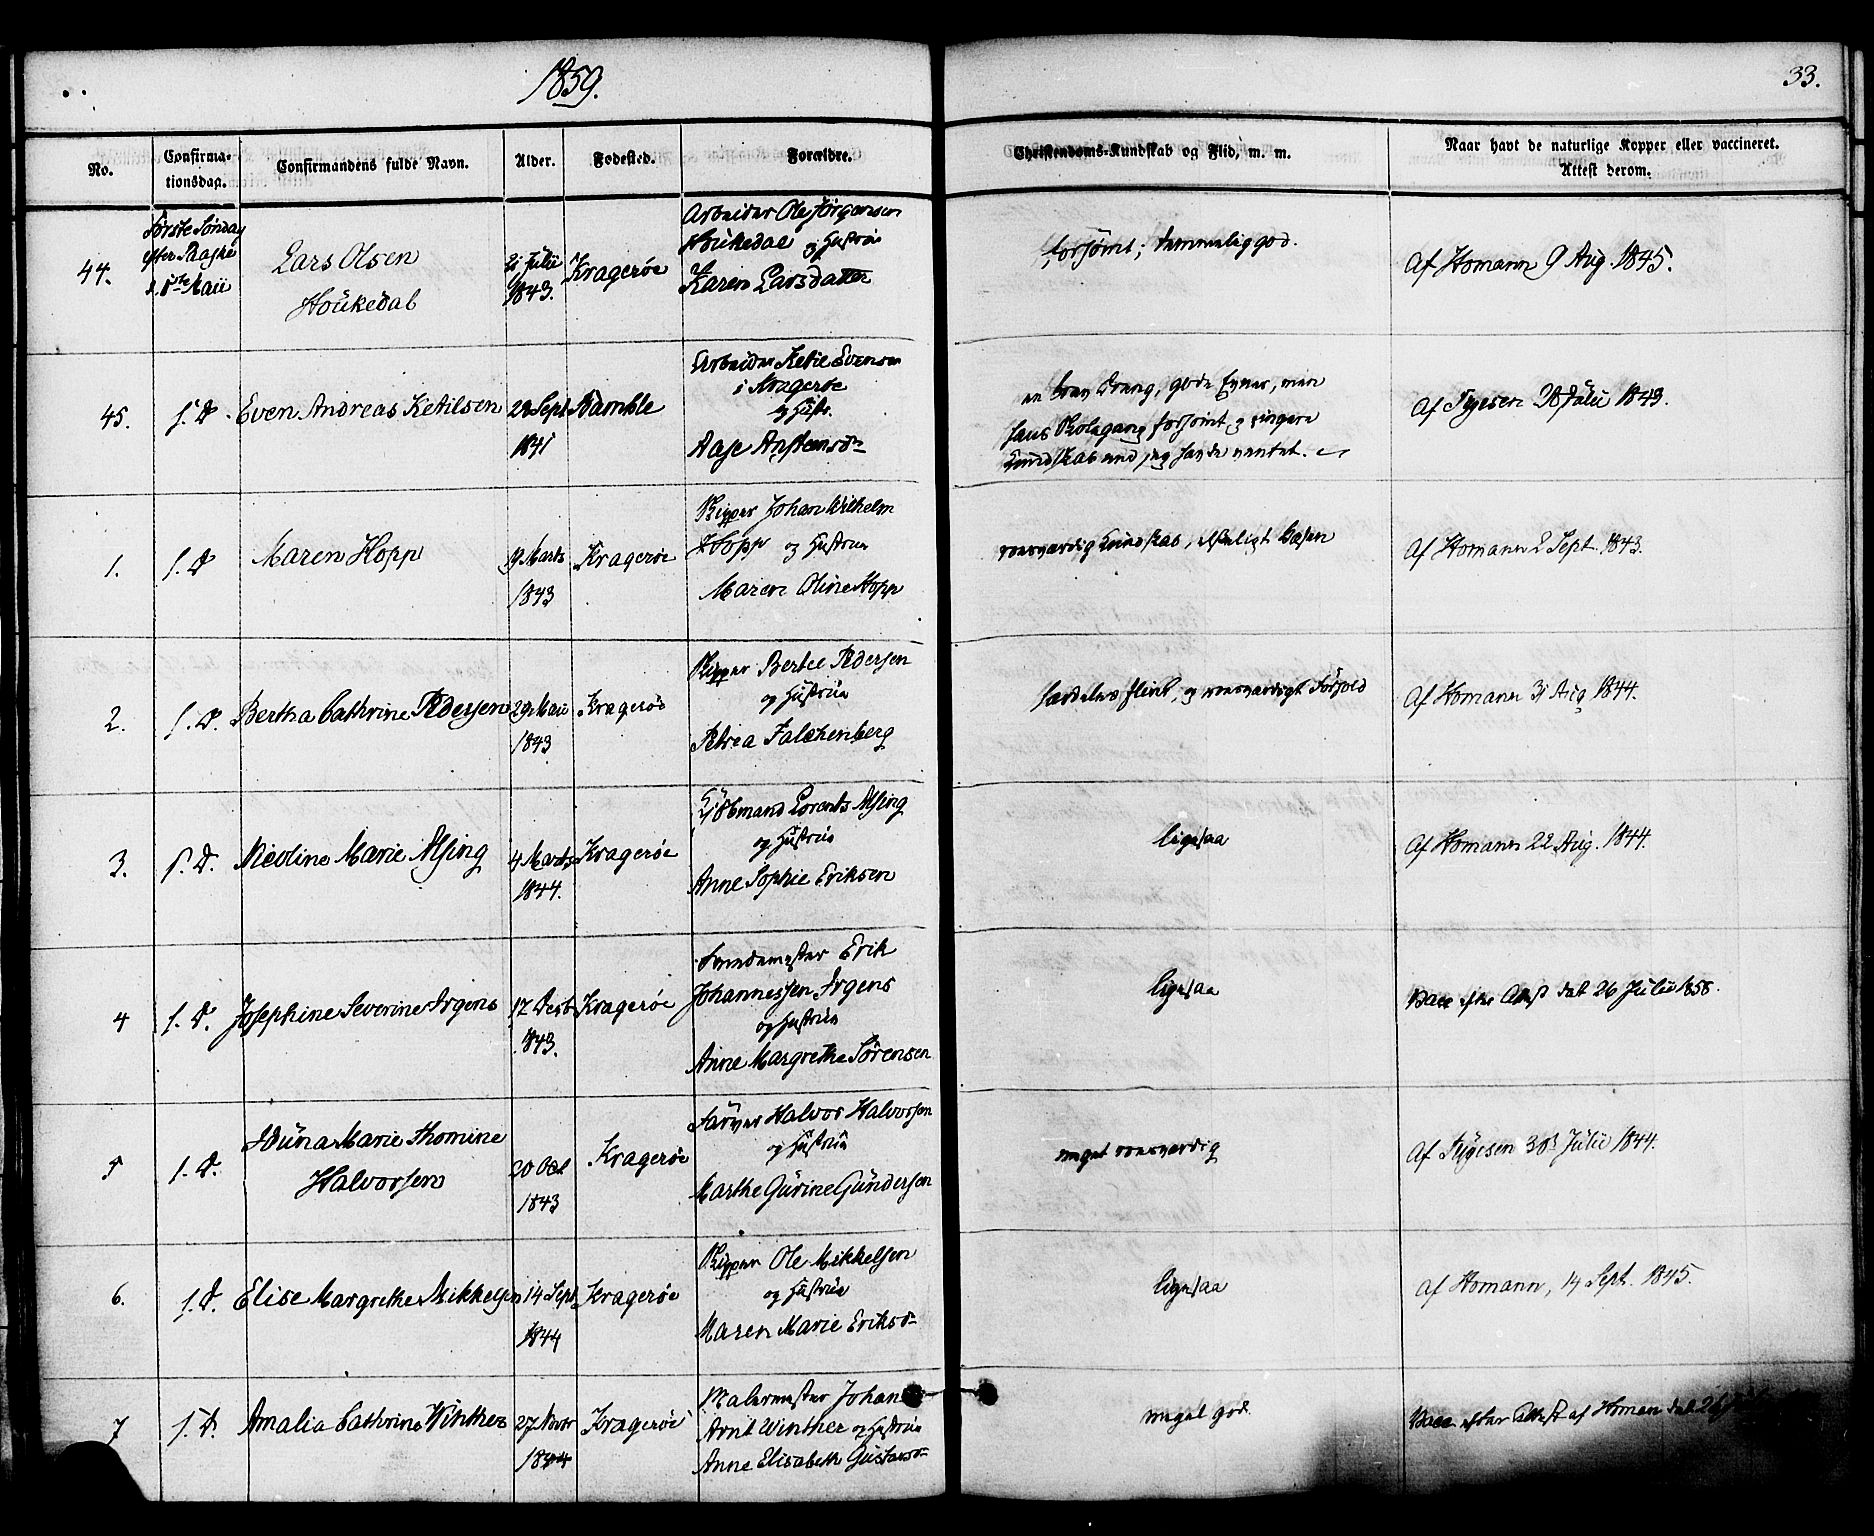 1859.
33.
No. Confirma- Confirmandens fulde Navn. Alder. Fødested. Forældre. Christendoms-Kundskab og Flid, m. m. Naar havt de naturlige Kopper eller vaccineret.
tionsdag. Attest derom.
44. Første Søndag
efter Paaske
d. 1ste Maii
Lars Olsen
Houkedal
21 Julii
1843.
Kragerøe
Arbeider Ole Jørgensen
Houkedal og Hustrue
Karen Larsdatter
forsømt; temmelig god.
Af Homann 9 Aug. 1845.
45. s. D. Even Andreas Ketilsen 28 Sept
1841
Bamble
Arbeider Ketil Evensen
i Kragerøe
og Hustr.
Aase Anstensd-
en brav Dreng, gode Evner, men
hans Skolegang forsømt og ringere
Kundskab end jeg havde ventet.
Af Tygesen 28 Julii 1843.
1. s. D Maren Hopp
9 Marts
1843
Kragerøe
Skipper Johan Wilhelm
Hopp og Hustrue
Maren Oline Hopp
roesværdig Kundskab, elskeligt Væsen
Af Homann 2 Sept. 1843.
2. s. D. Bertha Cathrine Pedersen 29 Maii
1843
Kragerøe
Skipper Bertel Pedersen
og Hustrue
Petrea Falchenberg
særdeles flink, og roesværdigt Forhold
Af Homann 31 Aug 1844.
3. s. D. Nicoline Marie Alsing 4 Marts
1844.
Kragerøe
Kjøbmand Lorents Alsing
og Hustrue
Anne Sophie Eriksen
ligesaa
Af Homann 22 Aug. 1844.
4 s. D. Josephine Severine Irgens 17 Decb
1843.
Kragerøe
Smedemester Erik
Johannessen Irgens
og Hustrue
Anne Margrethe Sørensen
ligesaa
Vacc efter Attest dat 26 Julii 1858.
5 s. D. Iduna Marie Thomine
Halvorsen
20 Oct
1843
Kragerøe
Farver Halvor Halvorsen
og Hustrue
Marthe Gurine Gundersen
meget roesværdig
Af Tygesen 30 Julii 1844.
6. s. D. Elise Margrethe Mikkelsen 14 Sept
1844
Kragerøe
Skipper Ole Mikkelsen
og Hustrue
Maren Marie Eriksd-
ligesaa
Af Homann, 14 Sept. 1845.
7 s. D. Amalia Cathrine Winther 27 Novbr
1844
Kragerøe
Malermester Johan
Arnt Winther og Hustrue
Anne Elisabeth Gustavsd-
meget god.
Vacc efter Attest af Homan dat 26